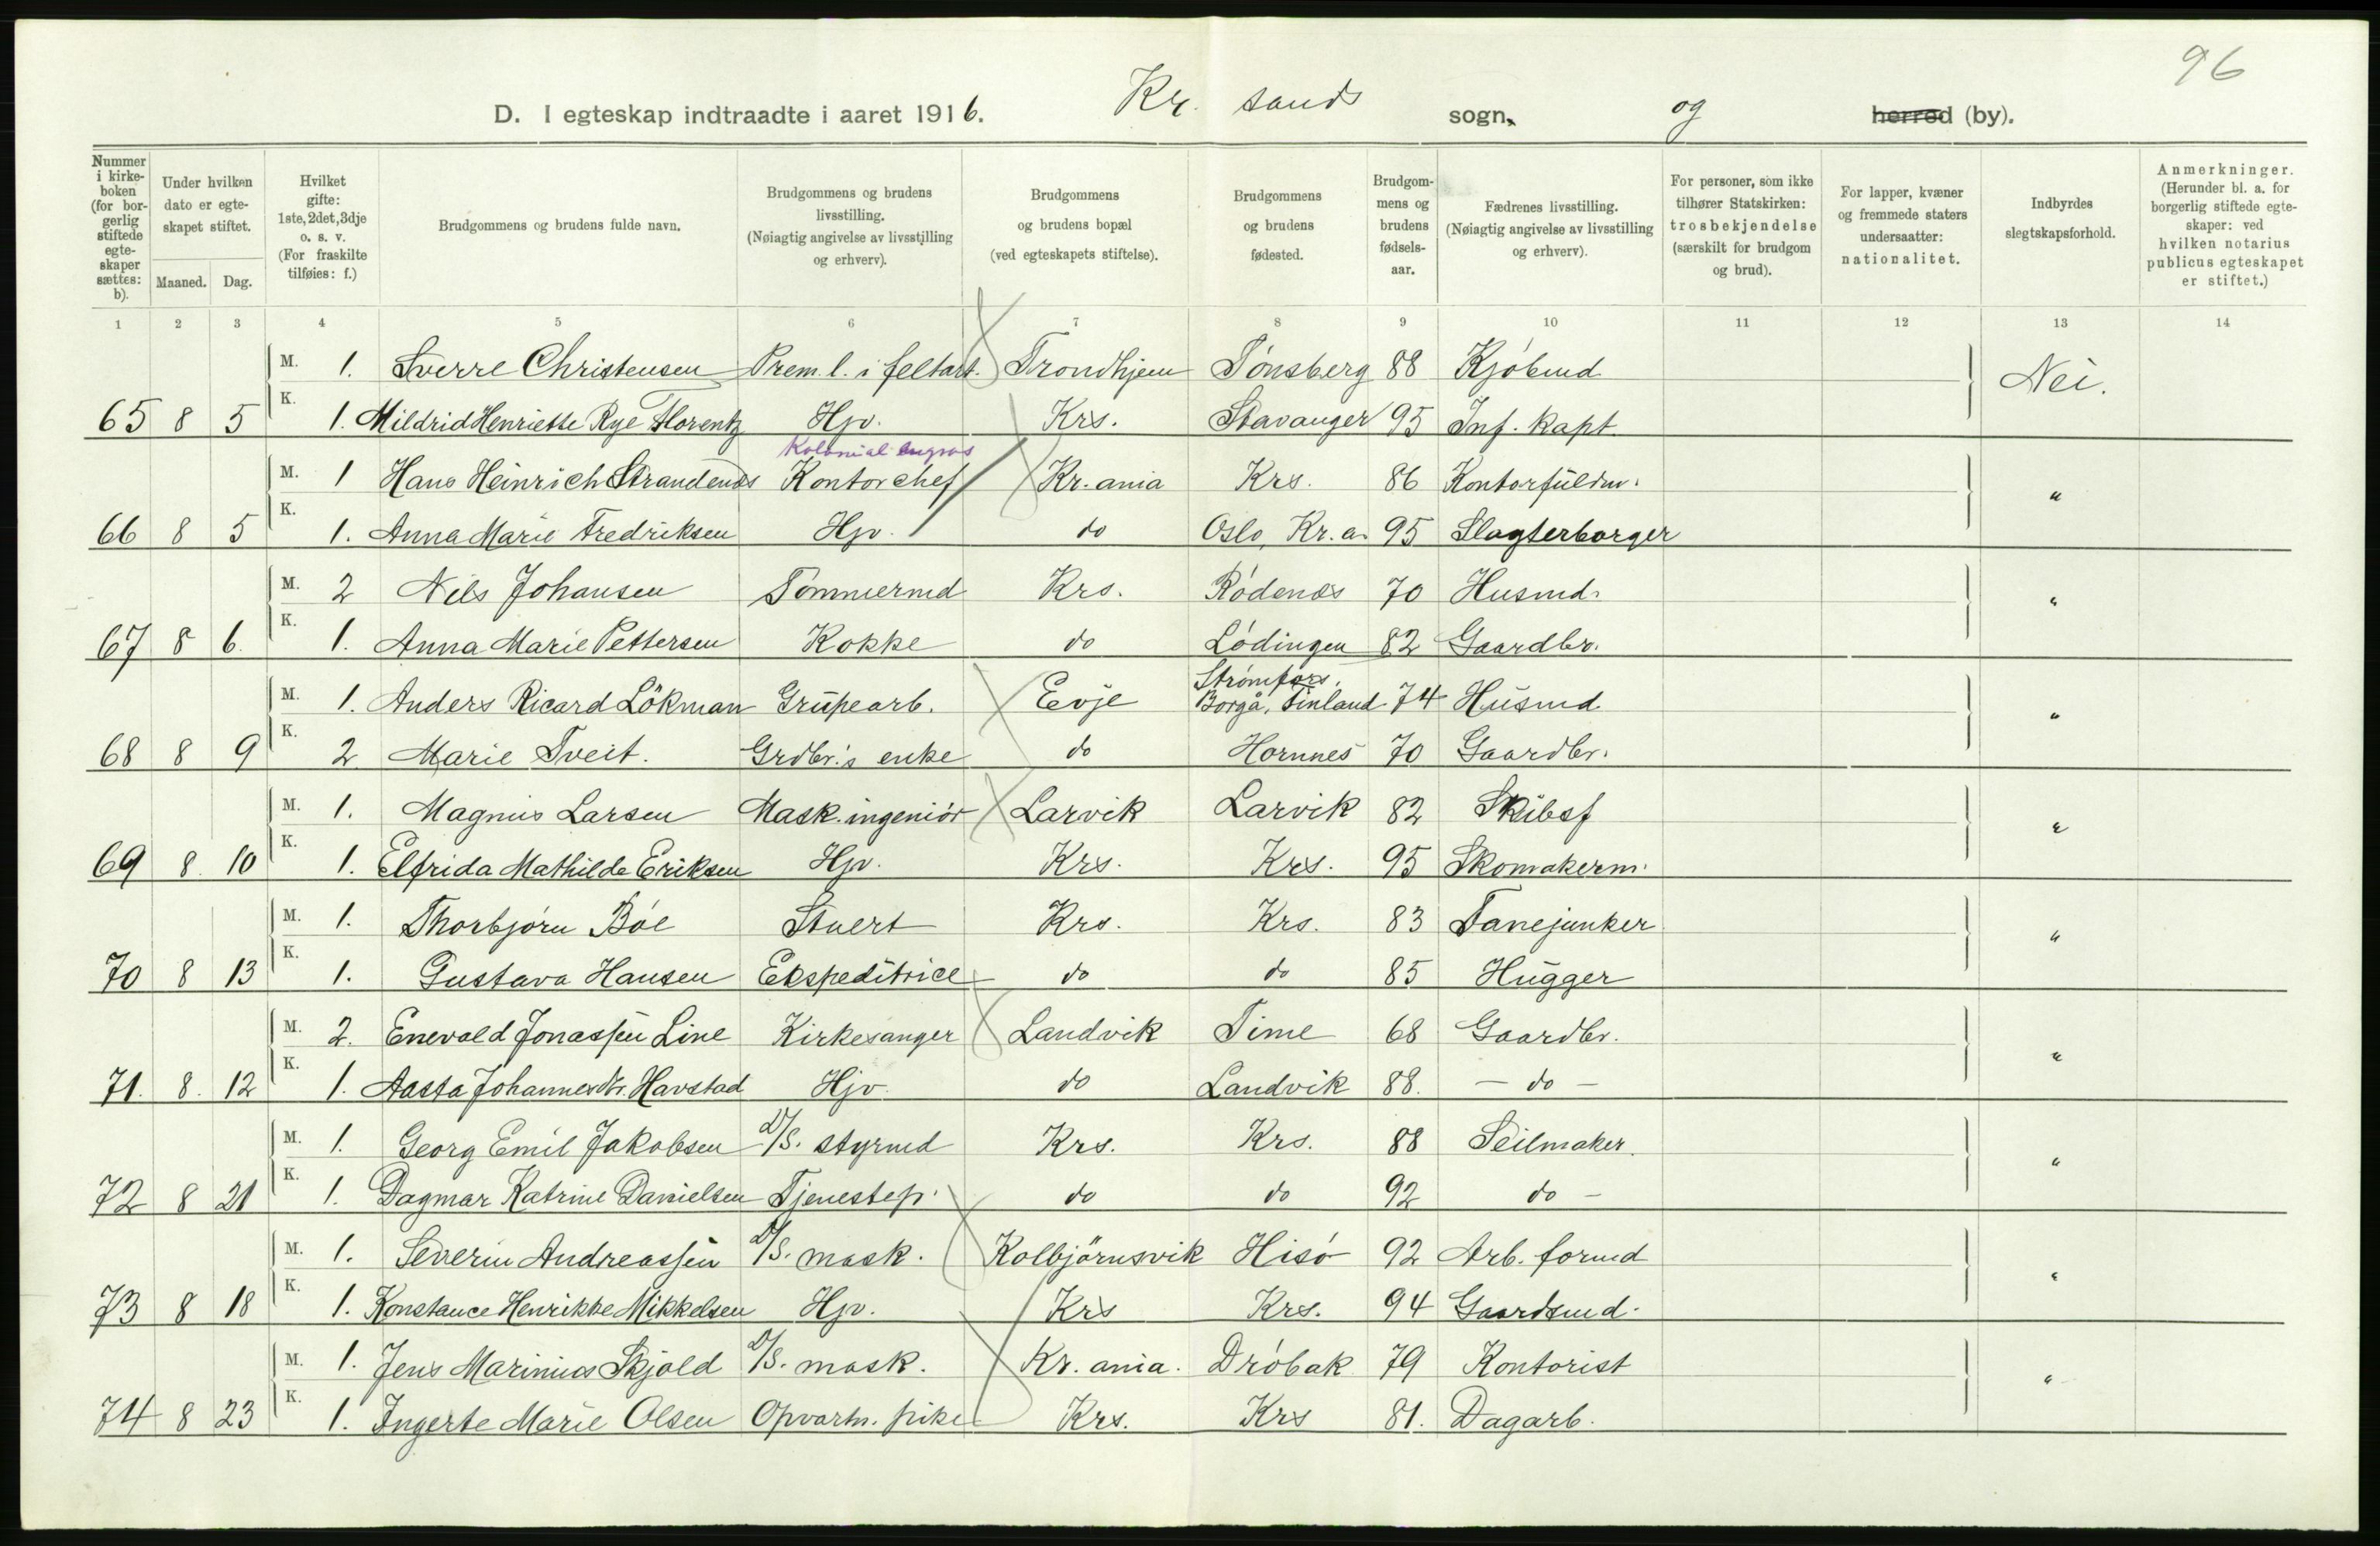 96
D. I egteskap indtraadte i aaret 1916. Kr. sands sogn, og herred (by).
Nummer i kirkeboken (for borgerlig stiftede egteskaper sættes: b). | Under hvilken dato er egteskapet stiftet. Maaned. Dag. | Hvilket gifte: 1ste, 2det, 3dje o. s. v. (For fraskilte tilføies: f.) | Brudgommens og brudens fulde navn. | Brudgommens og brudens livsstilling. (Nøiagtig angivelse av livsstilling og erhverv). | Brudgommens og brudens bopæl (ved egteskapets stiftelse). | Brudgommens og brudens fødested. | Brudgommens og brudens fødselsaar. | Fædrenes livsstilling. (Nøiagtig angivelse av livsstilling og erhverv). | For personer, som ikke tilhører Statskirken: trosbekjendelse (særskilt for brudgom og brud). | For lapper, kvæner og fremmede staters undersaatter: nationalitet. | Indbyrdes slegtskapsforhold. | Anmerkninger. (Herunder bl. a. for borgerlig stiftede egteskaper: ved hvilken notarius publicus egteskapet er stiftet.)
1 2 3 4 5 6 7 8 9 10 11 12 13 14
M. 1. Sverre Christensen Prem. l. i feltart. Trondhjem Tönsberg 88 Kjöbmd Nei.
65 8 5 K. 1. Mildrid Henriette Rye Florentz Hjv. Krs. Stavanger 95 Inf. Kapt.
Kolonial engros
M. 1 Hans Heinrich Strandenæs Kontorchef Kr.ania Krs. 86 Kontorfuldm. "
66 8 5 K. 1. Anna Marie Fredriksen Hjv. do Oslo, Kr.a. 95 Slagterborger
M. 2 Nils Johansen Tömmermd Krs. Rödenæs 70 Husmd. "
67 8 6. K. 1. Anna Marie Pettersen Kokke do Lödingen 82 Gaardbr.
Strömfors,
M. 1. Anders Ricard Lökman Grubearb. Evje Borgå, Finland 74 Husmd. "
68 8 9 K. 2 Marie Tveit. Grdbr.'s enke do Hornnes 70 Gaardbr.
M. 1. Magnus Larsen Mask.ingeniör Larvik Larvik 82 Skibsf "
69 8. 10 K. 1. Elfrida Mathilde Eriksen Hjv. Krs. Krs. 95 Skomakerm.
M. 1. Thorbjörn Böe Stuert Krs. Krs. 83 Fanejunker "
70 8 13 K. 1. Gustava Hansen Ekspeditrice do do 85 Hugger
M. 2. Enevald Jonassen Line Kirkesanger Landvik Time 68 Gaardbr. "
71. 8. 12 K. 1. Aasta Johannesdtr. Havstad Hjv. do Landvik 88. – do –
M. 1. Georg Emil Jakobsen D/S. styrmd Krs. Krs. 88 Seilmaker. "
72 8 21 K. 1. Dagmar Katrine Danielsen Tjenestep. do do 92 do –
M. 1. Severin Andreassen D/S. mask. Kolbjörnsvik Hisö 92 Arb. formd "
73 8 18 K. 1. Konstance Henrikke Mikkelsen Hjv. Krs Krs. 94 Gaardsmd.
M. 1. Jens Marinius Skjold D/S. mask. Kr. ania. Dröbak 79 Kontorist "
74 8 23 K. 1. Ingerte Marie Olsen Opvartn. pike Krs. Krs 81. Dagarb.